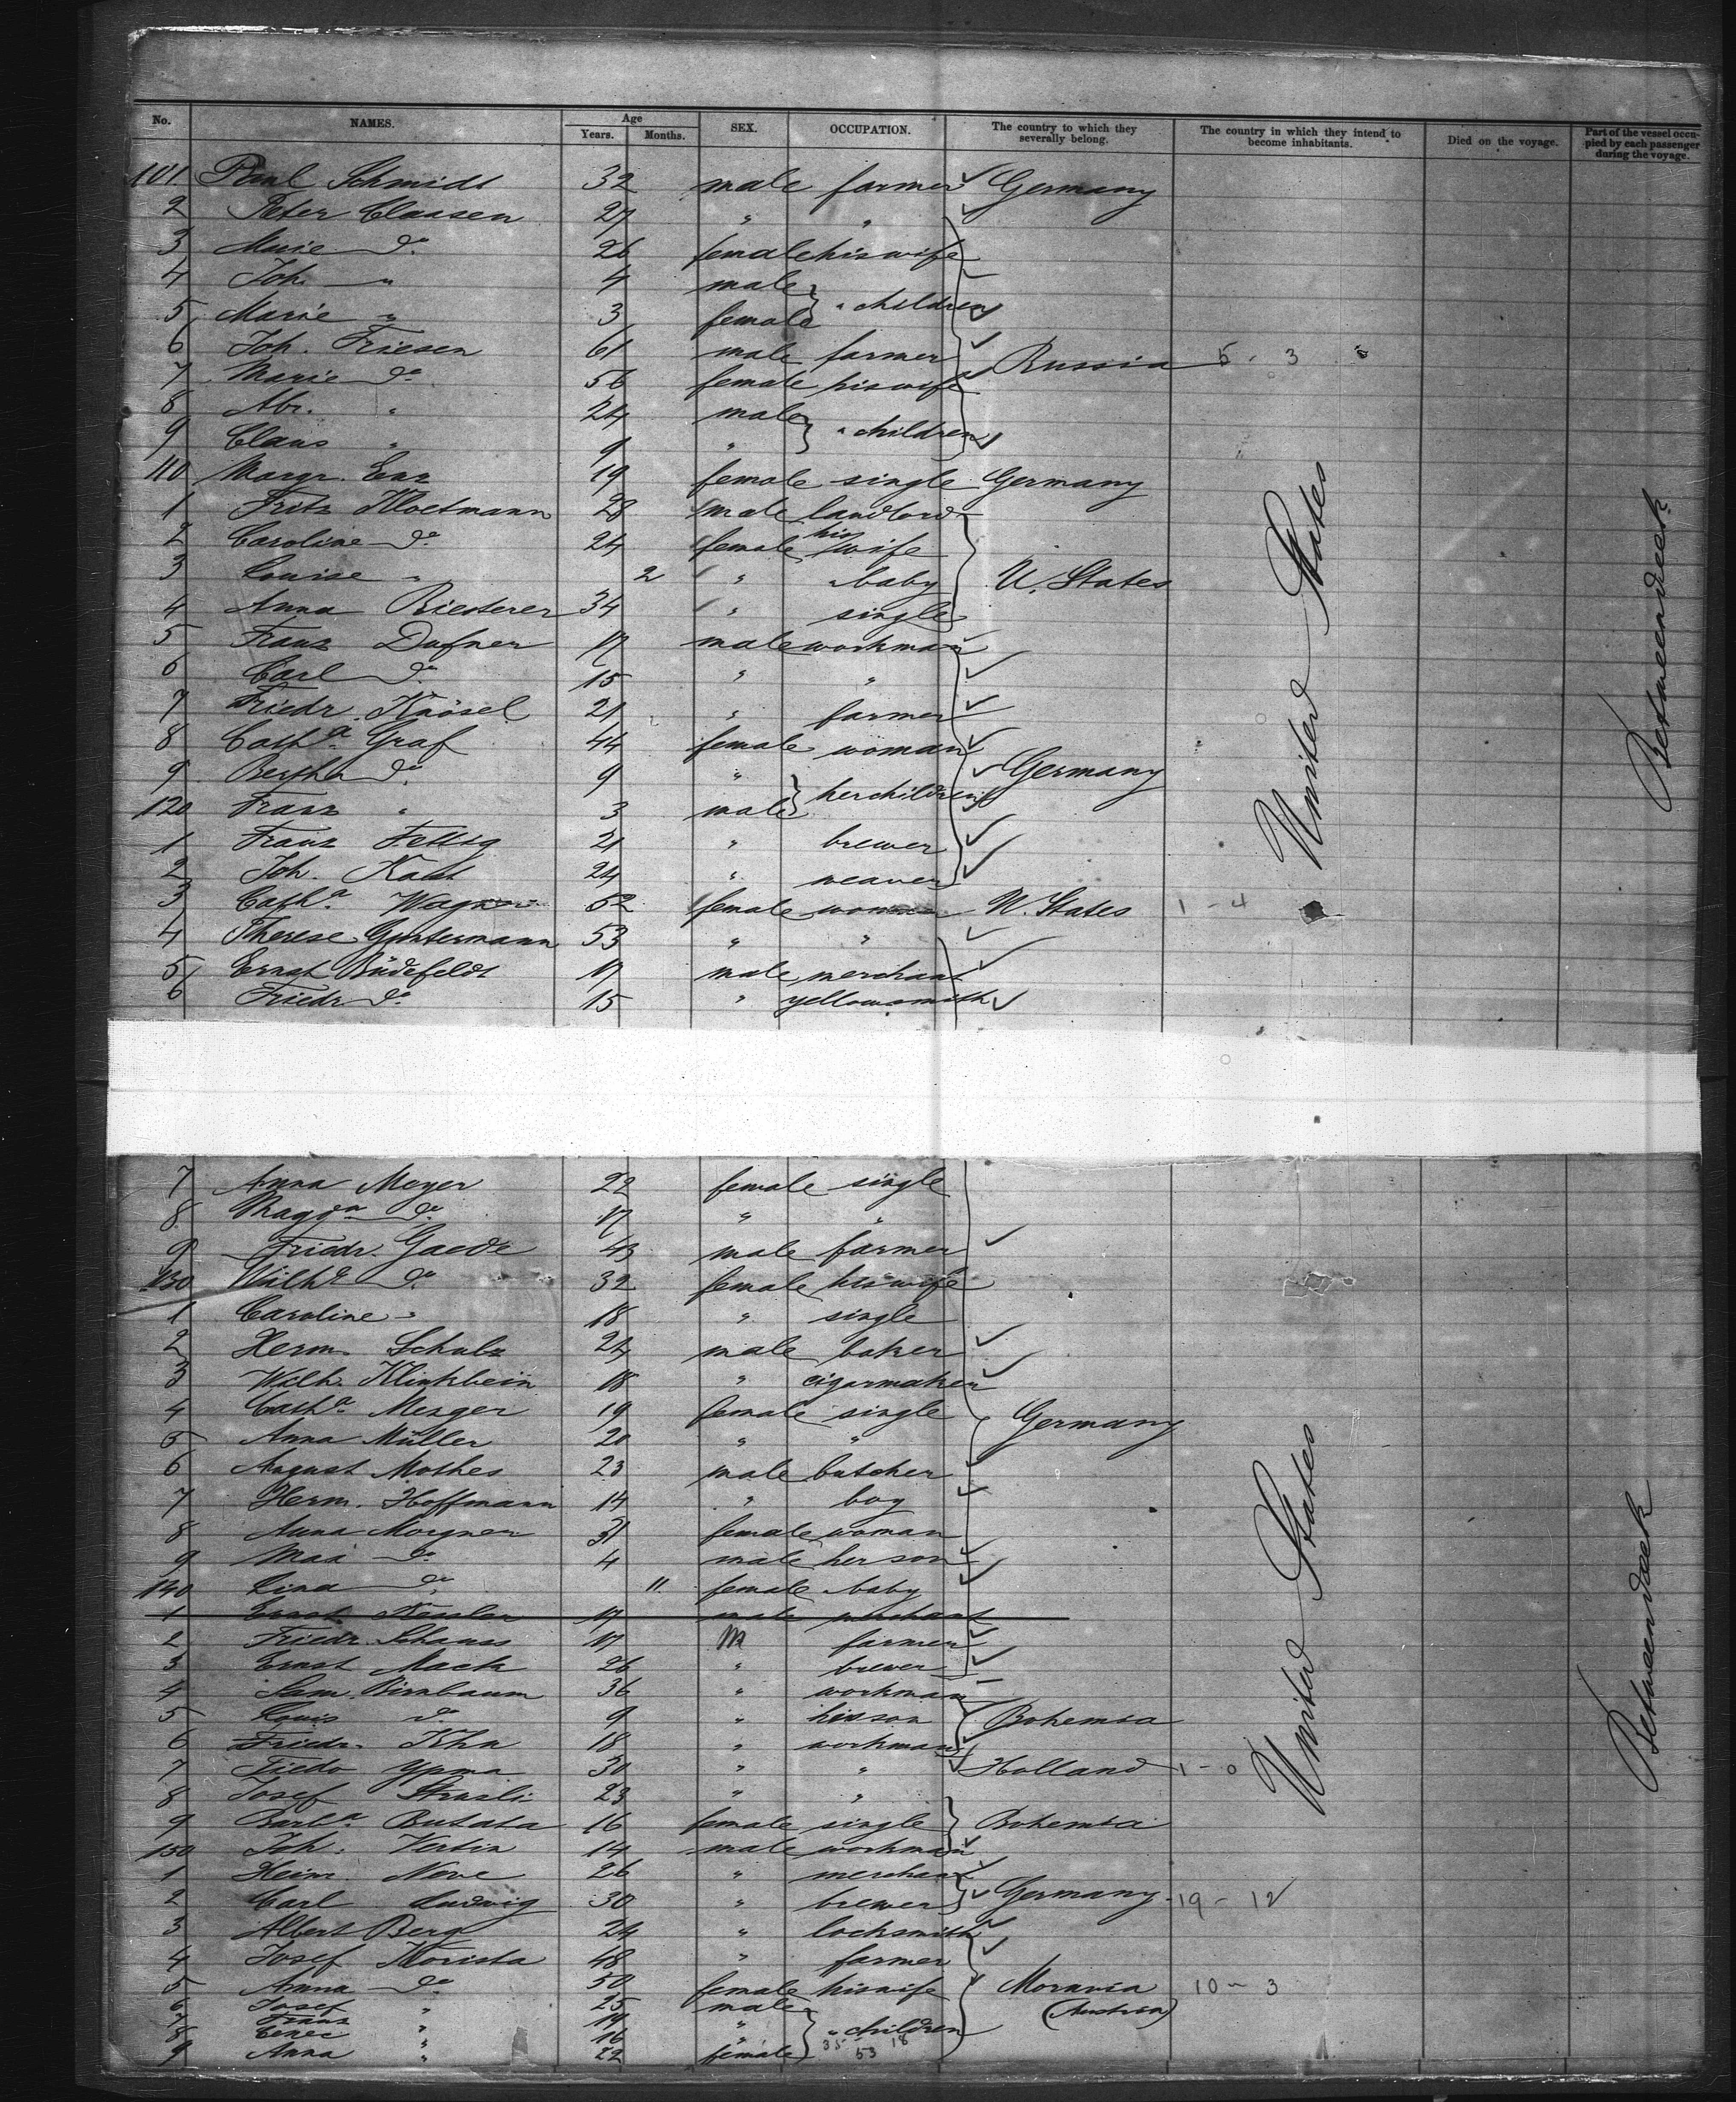 No. NAMES. Age Years. Months. SEX. OCCUPATION. The country to which they severally belong. The country in which they intend to become inhabitants. Died on the voyage. Part of the vessel occupied by each passenger during the voyage.
101 Paul Schmidt 32 male farmer Germany
2 Peter Claasen 27 " "
3 Marie do 26 female his wife
4 Joh. " 4 male
5 Marie " 3 female " children
6 Joh. Friesen 61 male farmer Russia 5 - 3
7 Marie do 56 female his wife
8 Abr. " 24 male
9 Claus " 9 " " children
110 Margr. Enz 19 female single Germany
1 Fritz Kloetmann 28 male landlord
2 Caroline do 24 female his wife
3 Louise " 2 " baby U. States
4 Anna Riesterer 34 " single
5 Franz Dufner 17 male workman
6 Carl do 15 " "
7 Friedr. Knösel 21 " farmer
8 Catha Graf 44 female woman
9 Bertha do 9 " Germany
120 Franz " 3 male her children
1 Franz Fettig 21 " brewer
2 Joh. Kast 24 " weaver
3 Catha Wagner 52 female woman U. States 1 - 4
4 Therese Guntermann 53 " "
5 Ernst Büdefeldt 17 male merchant
6 Friedr do 15 " yellowsmith
United States
Betweendeck
7 Anna Meyer 22 female single
8 Magda do 17 " "
9 Friedr. Gaede 43 male farmer
130 Wilhe do 32 female his wife
1 Caroline " 18 " single
2 Herm. Schulz 24 male baker
3 Wilh. Klinkbein 18 " cigarmaker
4 Catha Mezger 19 female single Germany
5 Anna Müller 20 " "
6 August Mothes 23 male butcher
7 Herm. Hoffmann 14 " boy
8 Anna Morgner 31 female woman
9 Max do 4 male her son
140 Lina do 11 female baby
1 Ernst Kessler 17 male merchant
2 Friedr. Schauss 17 M farmer
3 Ernst Mack 26 " brewer
4 Sam. Birnbaum 36 " workman
5 Louis do 9 " his son Bohemia
6 Friedr. Khn 18 " workman
7 Tiedo Ypma 30 " " Holland 1 - 0
8 Josef 23 " "
9 Barba Butata 16 female single Bohemia
150 Joh. Vertin 14 male workman
1 Heinr. Neve 26 " merchant
2 Carl Ludwig 30 " brewer Germany 19 - 12
3 Albert Berg 24 " locksmith
4 Josef Korista 48 " farmer
5 Anna do 50 female his wife Moravia 10 - 3
6 Josef " 25 male (Austria)
7 Franz " 19 "
8 " 16 " " children
9 Anna " 22 female 35 18 53
United States
Betweendeck